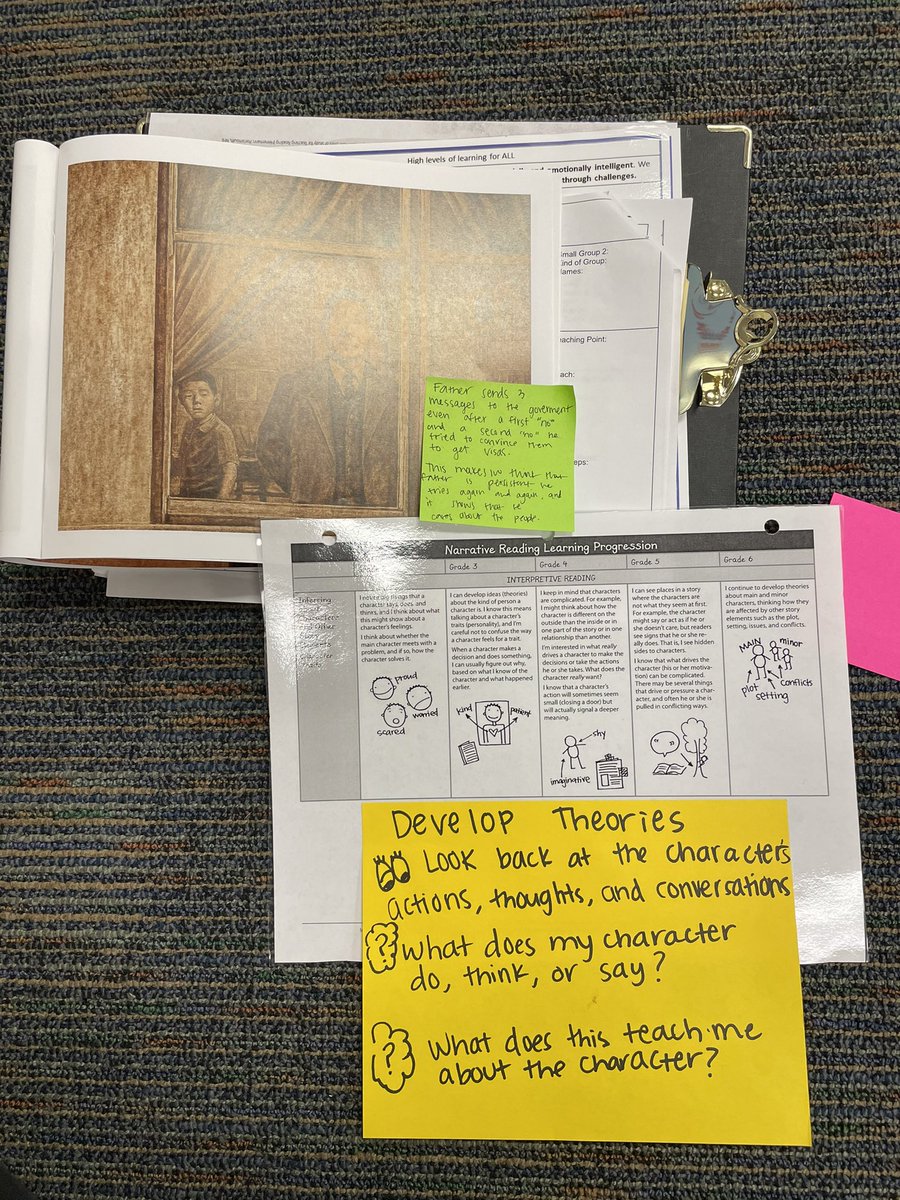 High levels of learning for ALL
emotionally intelligent. We
through challenges.
Small Group 2:
Kind of Group:
Names:
Teaching Point:
Father sends 3
messages to the goverment
even after a first "no"
and a second "no" he
tried to convince them
to get visas.
This makes me think that
father is persistent he
tries again and again, and
it shows that he
cares about the people.
Narrative Reading Learning Progression
Grade 3
Grade 4
Grade 5
Grade 6
INTERPRETIVE READING
Inferring
character says, does, and
thinks, and I think about what
this might show about a
character's feelings.
I think about whether the
main character meets with a
problem, and if so, how the
character solves it.
proud
worried
scared
I can develop ideas (theories)
about the kind of person a
character is. I know this means
talking about a character's
traits (personality), and I'm
careful not to confuse the way
a character feels for a trait.
When a character makes a
decision and does something,
I can usually figure out why,
based on what I know of the
character and what happened
earlier.
kind
patient
I keep in mind that characters
are complicated. For example,
I might think about how the
character is different on the
outside than the inside or in
one part of the story or in one
relationship than another.
I'm interested in what really
drives a character to make the
decisions or take the actions
he or she takes. What does the
character really want?
I know that a character's
action will sometimes seem
small (closing a door) but
will actually signal a deeper
meaning.
shy
imaginative
I can see places in a story
where the characters are
not what they seem at first.
For example, the character
might say or act as if he or
she doesn't care, but readers
see signs that he or she re-
ally does. That is, I see hidden
sides to characters.
I know that what drives the
character (his or her motiva-
tion) can be complicated.
There may be several things
that drive or pressure a char-
acter, and often he or she is
pulled in conflicting ways.
I continue to develop theories
about main and minor
characters, thinking how they
are affected by other story
elements such as the plot,
setting, issues, and conflicts.
MAIN
minor
plot
conflicts
setting
Develop Theories
Look back at the character's
actions, thoughts, and conversations
? What does my character
do, think, or say?
? What does this teach me
about the character?